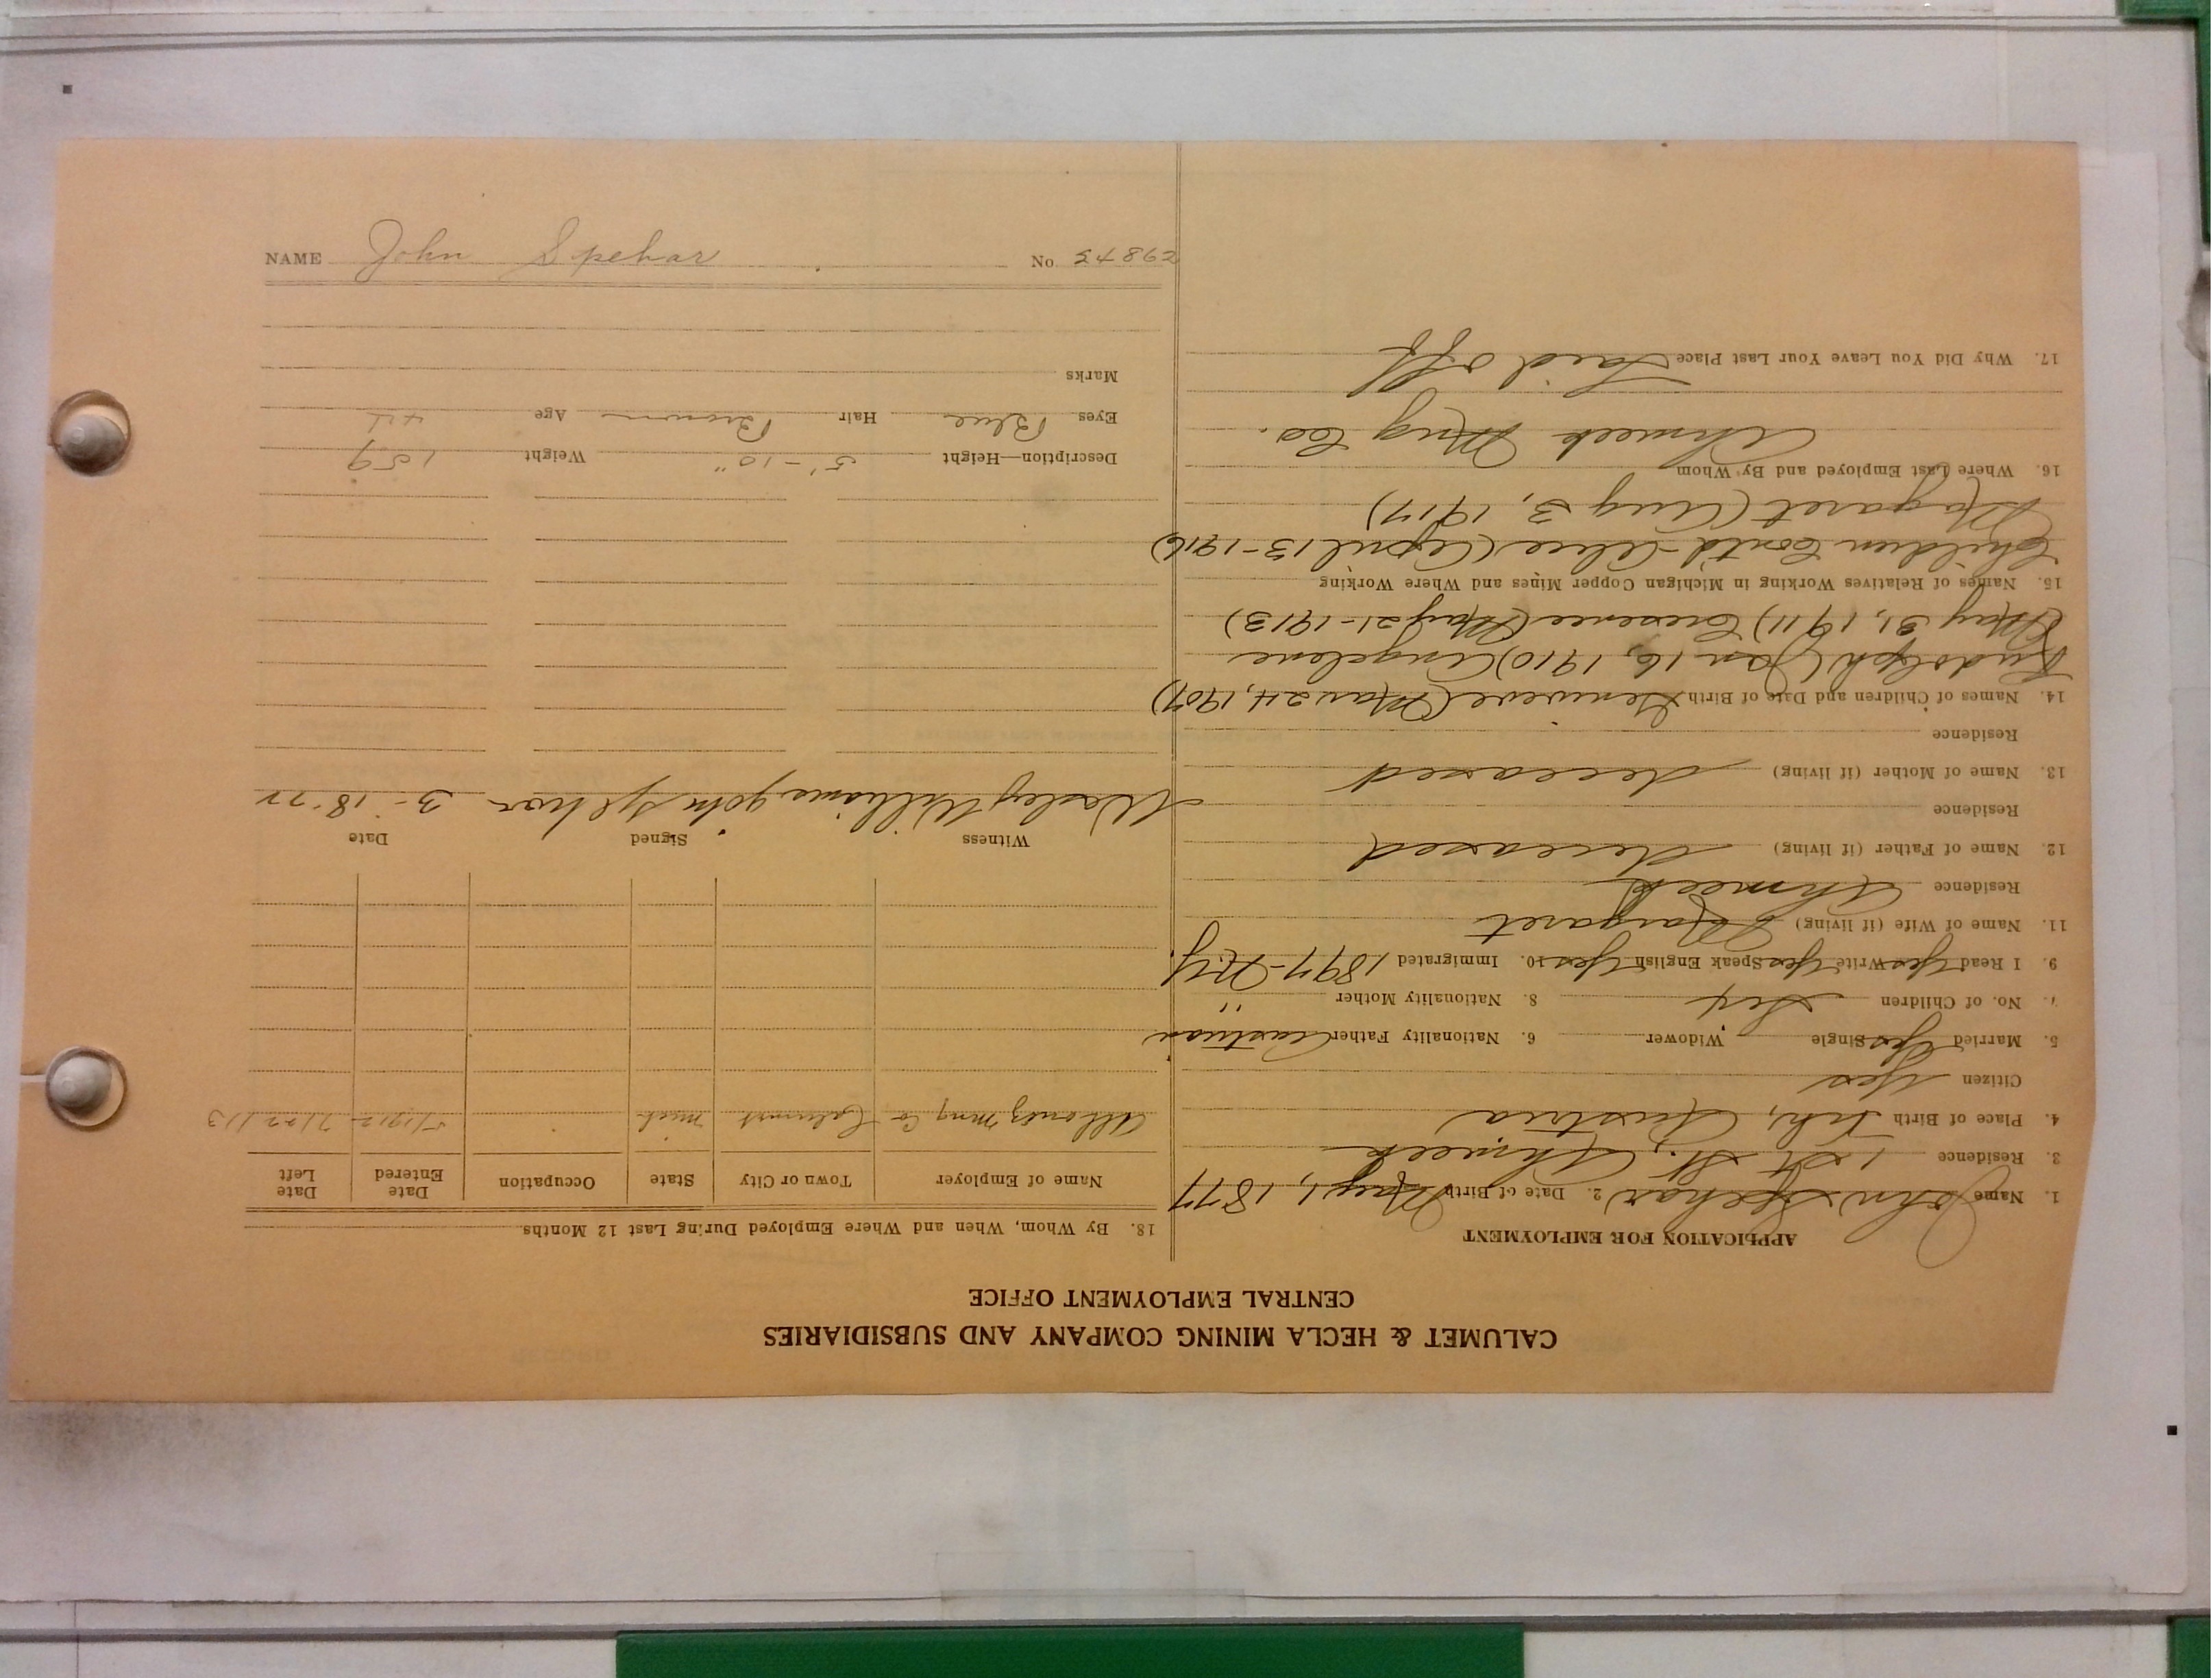 CALUMET & HECLA MINING COMPANY AND SUBSIDIARIES
CENTRAL EMPLOYMENT OFFICE
APPLICATION FOR EMPLOYMENT
1. Name John Spehar 2. Date of Birth May 1, 1877
3. Residence 1 St St., Ahmeek
4. Place of Birth Austria
Citizen Yes
5. Married Yes Single Widower 6. Nationality Father Austrian
7. No. of Children Six 8. Nationality Mother "
9. I Read Yes Write Yes Speak English Yes 10. Immigrated 1897-N.Y.
11. Name of Wife (if living) Margaret
Residence Ahmeek
12. Name of Father (if living) deceased
Residence
13. Name of Mother (if living) deceased
Residence
14. Names of Children and Date of Birth Genivieve (Mar 24, 1907)
Rudolph (Jan 16, 1910) Angelene
(May 31, 1911) Cresence (May 21-1913)
15. Names of Relatives Working in Michigan Copper Mines and Where Working
Children Contd- Alice (April 13-1916)
Magaret (Aug 3, 1917)
16. Where Last Employed and By Whom
Ahmeek Mng Co.
17. Why Did You Leave Your Last Place Laid off
18. By Whom, When and Where Employed During Last 12 Months
Name of Employer Town or City State Occupation Date Entered Date Left
Allouez Mng Co Calumet Mich 7/22/13
Witness Signed Date
Wesley Williams John Spehar 3-18-22
Description—Height 5'-10" Weight 159
Eyes Blue Hair Brown Age 44
Marks
NAME John Spehar No 34862